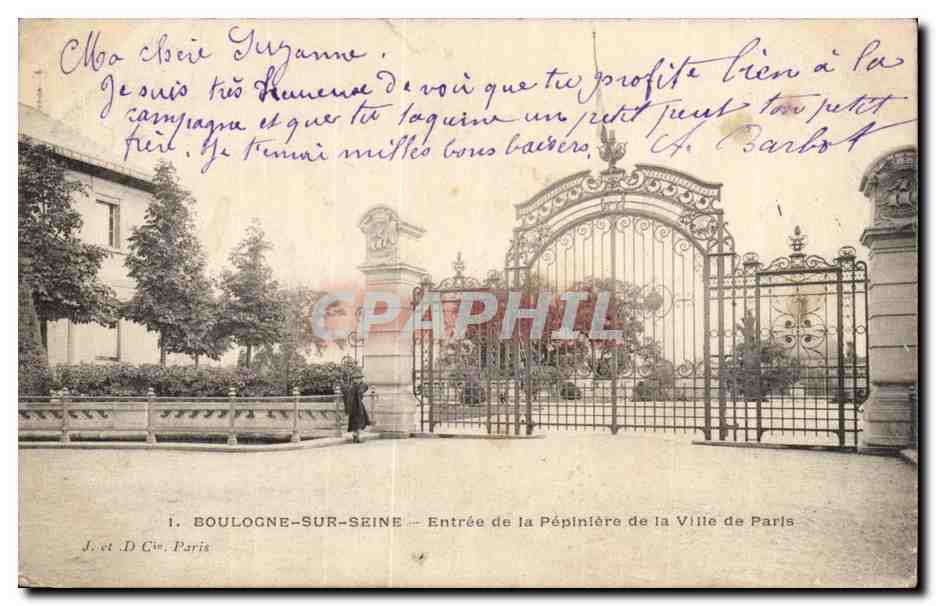 Ma chère Suzanne.
Je suis très heureuse de voir que tu profite bien à la
campagne et que tu taquine un petit peut ton petit
frère. Je t'envoi milles bons baisers. A. Barbot
CPAPHIL
1. BOULOGNE-SUR-SEINE - Entrée de la Pépinière de la Ville de Paris
J. et D Cie. Paris